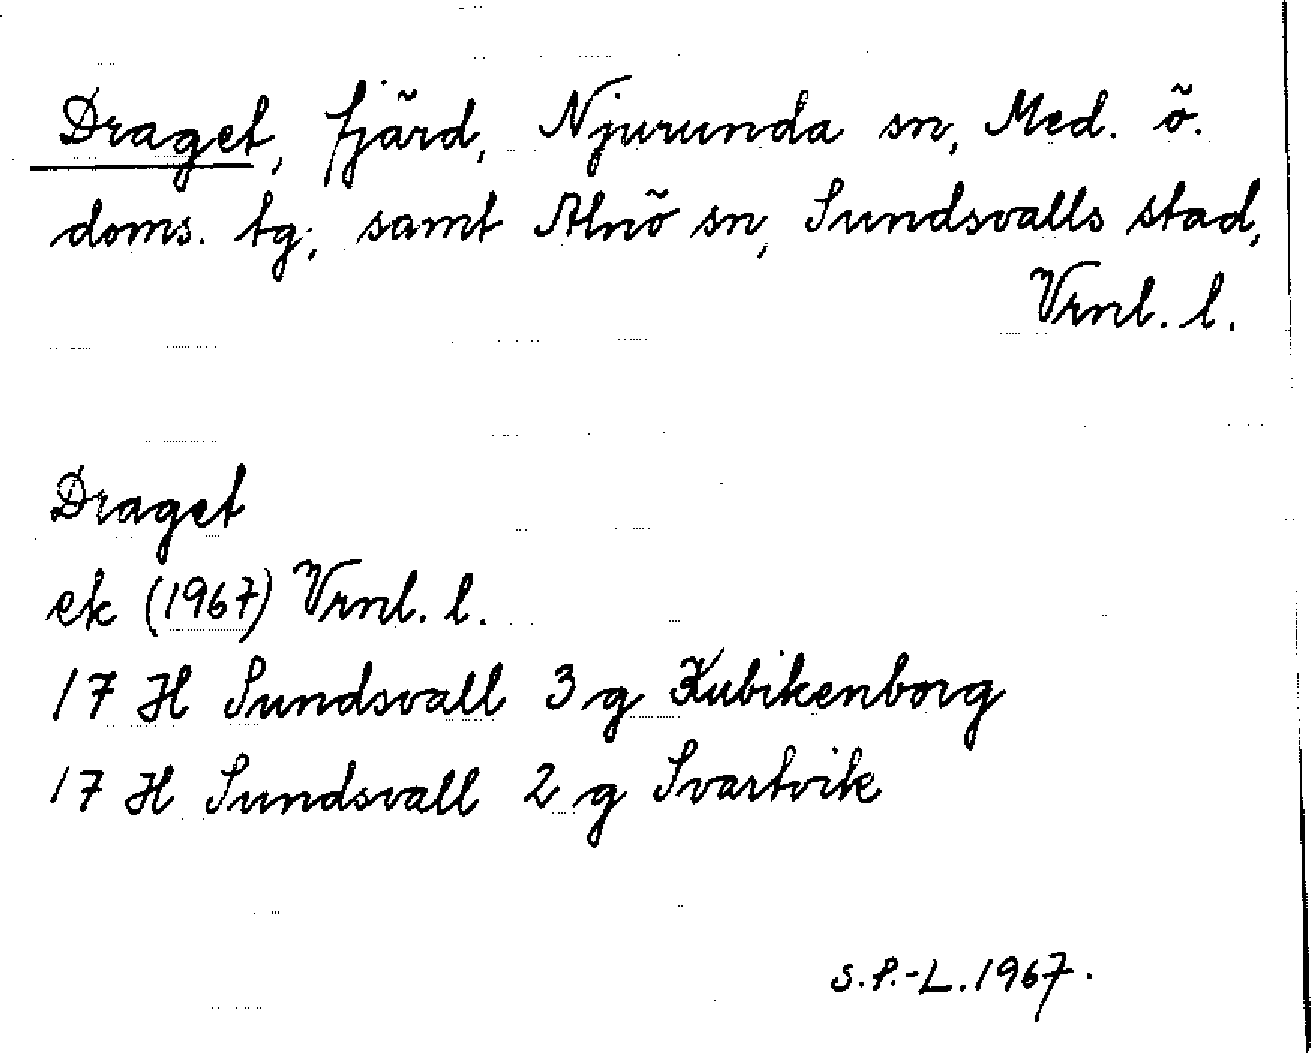 Draget, fjärd, Njurunda sn, Med. ö.
doms. tg., samt Alnö sn, Sundsvalls stad,
Vrnl. l.
Draget
ek (1967) Vrnl. l.
17 H Sundsvall 3 g Kubikenborg
17 H Sundsvall 2 g Svartvik
S.P.-L. 1967.